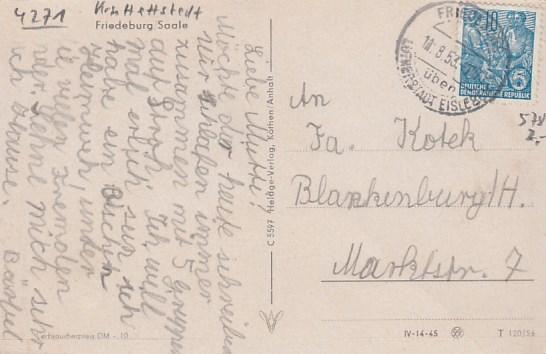 4271 Krs Hettstedt
Friedeburg, Saale
Liebe Mutti!
Möchte dir heute schreiben
wir schlafen immer
zusammen mit 5 Gruppen
auf Stroh. Ich will
mal ehrlich sein ich
habe ein bischen
Heimweh, unter
die vielen Fremden
Sehne mich sehr
nach Hause.
Bärbel
Verbraucherpreis DM -.10
C 5597 Heldge-Verlag, Köthen/Anhalt
FRIEDEBURG
11.8.53
über
LUTHERSTADT EISLEBEN
5
DEUTSCHE
DEMOKRATISCHE REPUBLIK
578
2,-
An
Fa. Kotek
Blankenburg/H.
Marktstr. 7
IV-14-45
T 120/56